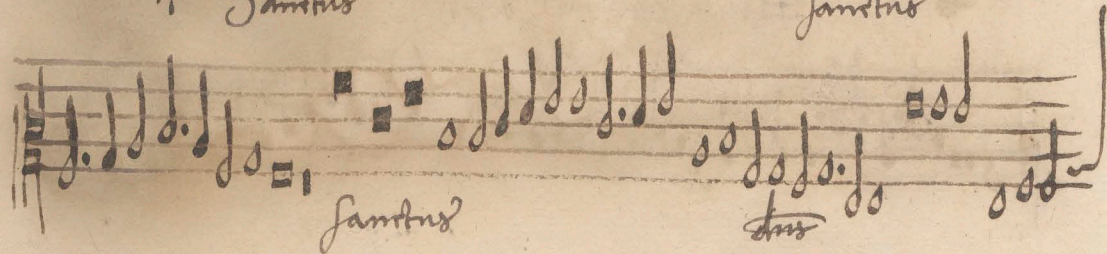 Sanctus sanctus
sanctus dns